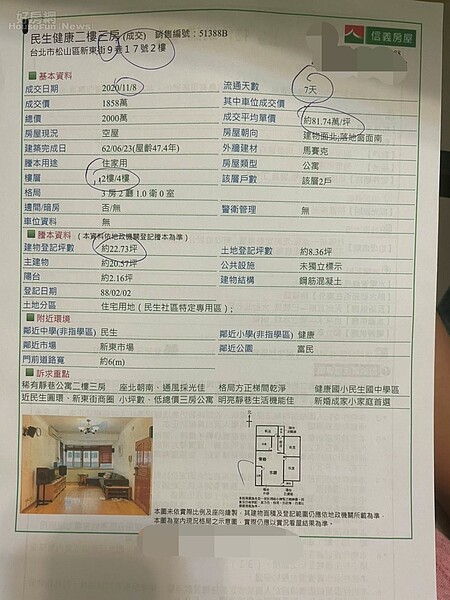 好房網
HouseFun News
民生健康二樓三房 (成交) 銷售編號：51388B
台北市松山區新東街9巷17號2樓
信義房屋
基本資料
成交日期 2020/11/8 流通天數 7天
成交價 1858萬 其中車位成交價
總價 2000萬 成交平均單價 約81.74萬/坪
房屋現況 空屋 房屋朝向 建物面北;落地窗面南
建築完成日 62/06/23(屋齡47.4年) 外牆建材 馬賽克
謄本用途 住家用 房屋類型 公寓
樓層 2樓/4樓 該層戶數 該層2戶
格局 3 房 2 廳 1.0 衛 0 室
邊間/暗房 否/無 警衛管理 無
車位資料 無
謄本資料 (本資料依地政機關登記謄本為準)
建物登記坪數 約22.73坪 土地登記坪數 約8.36坪
主建物 約20.57坪 公共設施 未獨立標示
陽台 約2.16坪 建物結構 鋼筋混凝土
登記日期 88/02/02
土地分區 住宅用地 (民生社區特定專用區)；
附近環境
鄰近中學(非指學區) 民生 鄰近小學(非指學區) 健康
鄰近市場 新東市場 鄰近公園 富民
門前道路寬 約6(m)
訴求重點
稀有靜巷公寓二樓三房 座北朝南，通風採光佳 格局方正梯間乾淨 健康國小民生國中學區
近民生圓環、新東街商圈 小坪數、低總價三房公寓 明亮靜巷生活機能佳 新婚成家小家庭首選
本圖未依實際比例及座向繪製，其建物面積及登記範圍仍應依地政機關所載為準，
本圖為室內現況格局之示意圖，實際仍應以實況看屋結果為準。